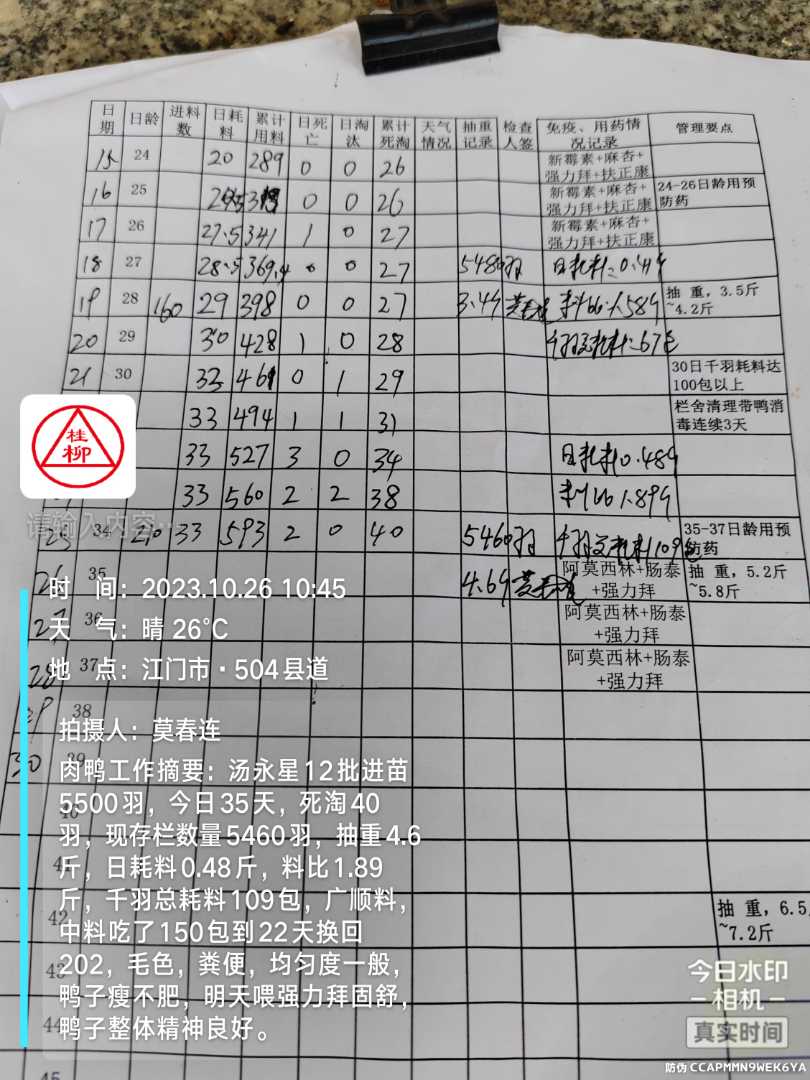 日期 日龄 进料数 日耗料 累计用料 日死亡 日淘汰 累计死淘 天气情况 抽重记录 检查人签 免疫、用药情况记录 管理要点
15 24 20 289 0 0 26 新霉素+麻杏+强力拜+扶正康
16 25 0 0 26 新霉素+麻杏+强力拜+扶正康 24-26日龄用预防药
17 26 27.5 341 1 0 27 新霉素+麻杏+强力拜+扶正康
18 27 28.5 369.4 0 0 27 5480羽 日耗料
19 28 160 29 398 0 0 27 3.4斤 料比 1.58斤 抽重，3.5斤~4.2斤
20 29 30 428 1 0 28 千羽总耗料 67包
21 30 33 461 0 1 29 30日千羽耗料达100包以上
33 494 1 1 31 栏舍清理带鸭消毒连续3天
33 527 3 0 34 日耗料0.48斤
33 560 2 2 38 料比1.89斤
25 34 210 33 593 2 0 40 5460羽 千羽总耗料109包 35-37日龄用预防药
26 35 4.6斤 阿莫西林+肠泰+强力拜 抽重，5.2斤~5.8斤
27 36 阿莫西林+肠泰+强力拜
28 37 阿莫西林+肠泰+强力拜
29 38
30 39
42 抽重，6.5~7.2斤
43
44
45
桂
柳
请输入内容...
时 间：2023.10.26 10:45
天 气：晴 26℃
地 点：江门市·504县道
拍摄人：莫春连
肉鸭工作摘要：汤永星12批进苗
5500羽，今日35天，死淘40
羽，现存栏数量5460羽，抽重4.6
斤，日耗料0.48斤，料比1.89
斤，千羽总耗料109包，广顺料，
中料吃了150包到22天换回
202，毛色，粪便，均匀度一般，
鸭子瘦不肥，明天喂强力拜固舒，
鸭子整体精神良好。
今日水印
-相机-
真实时间
防伪 CCAPMMN9WEK6YA